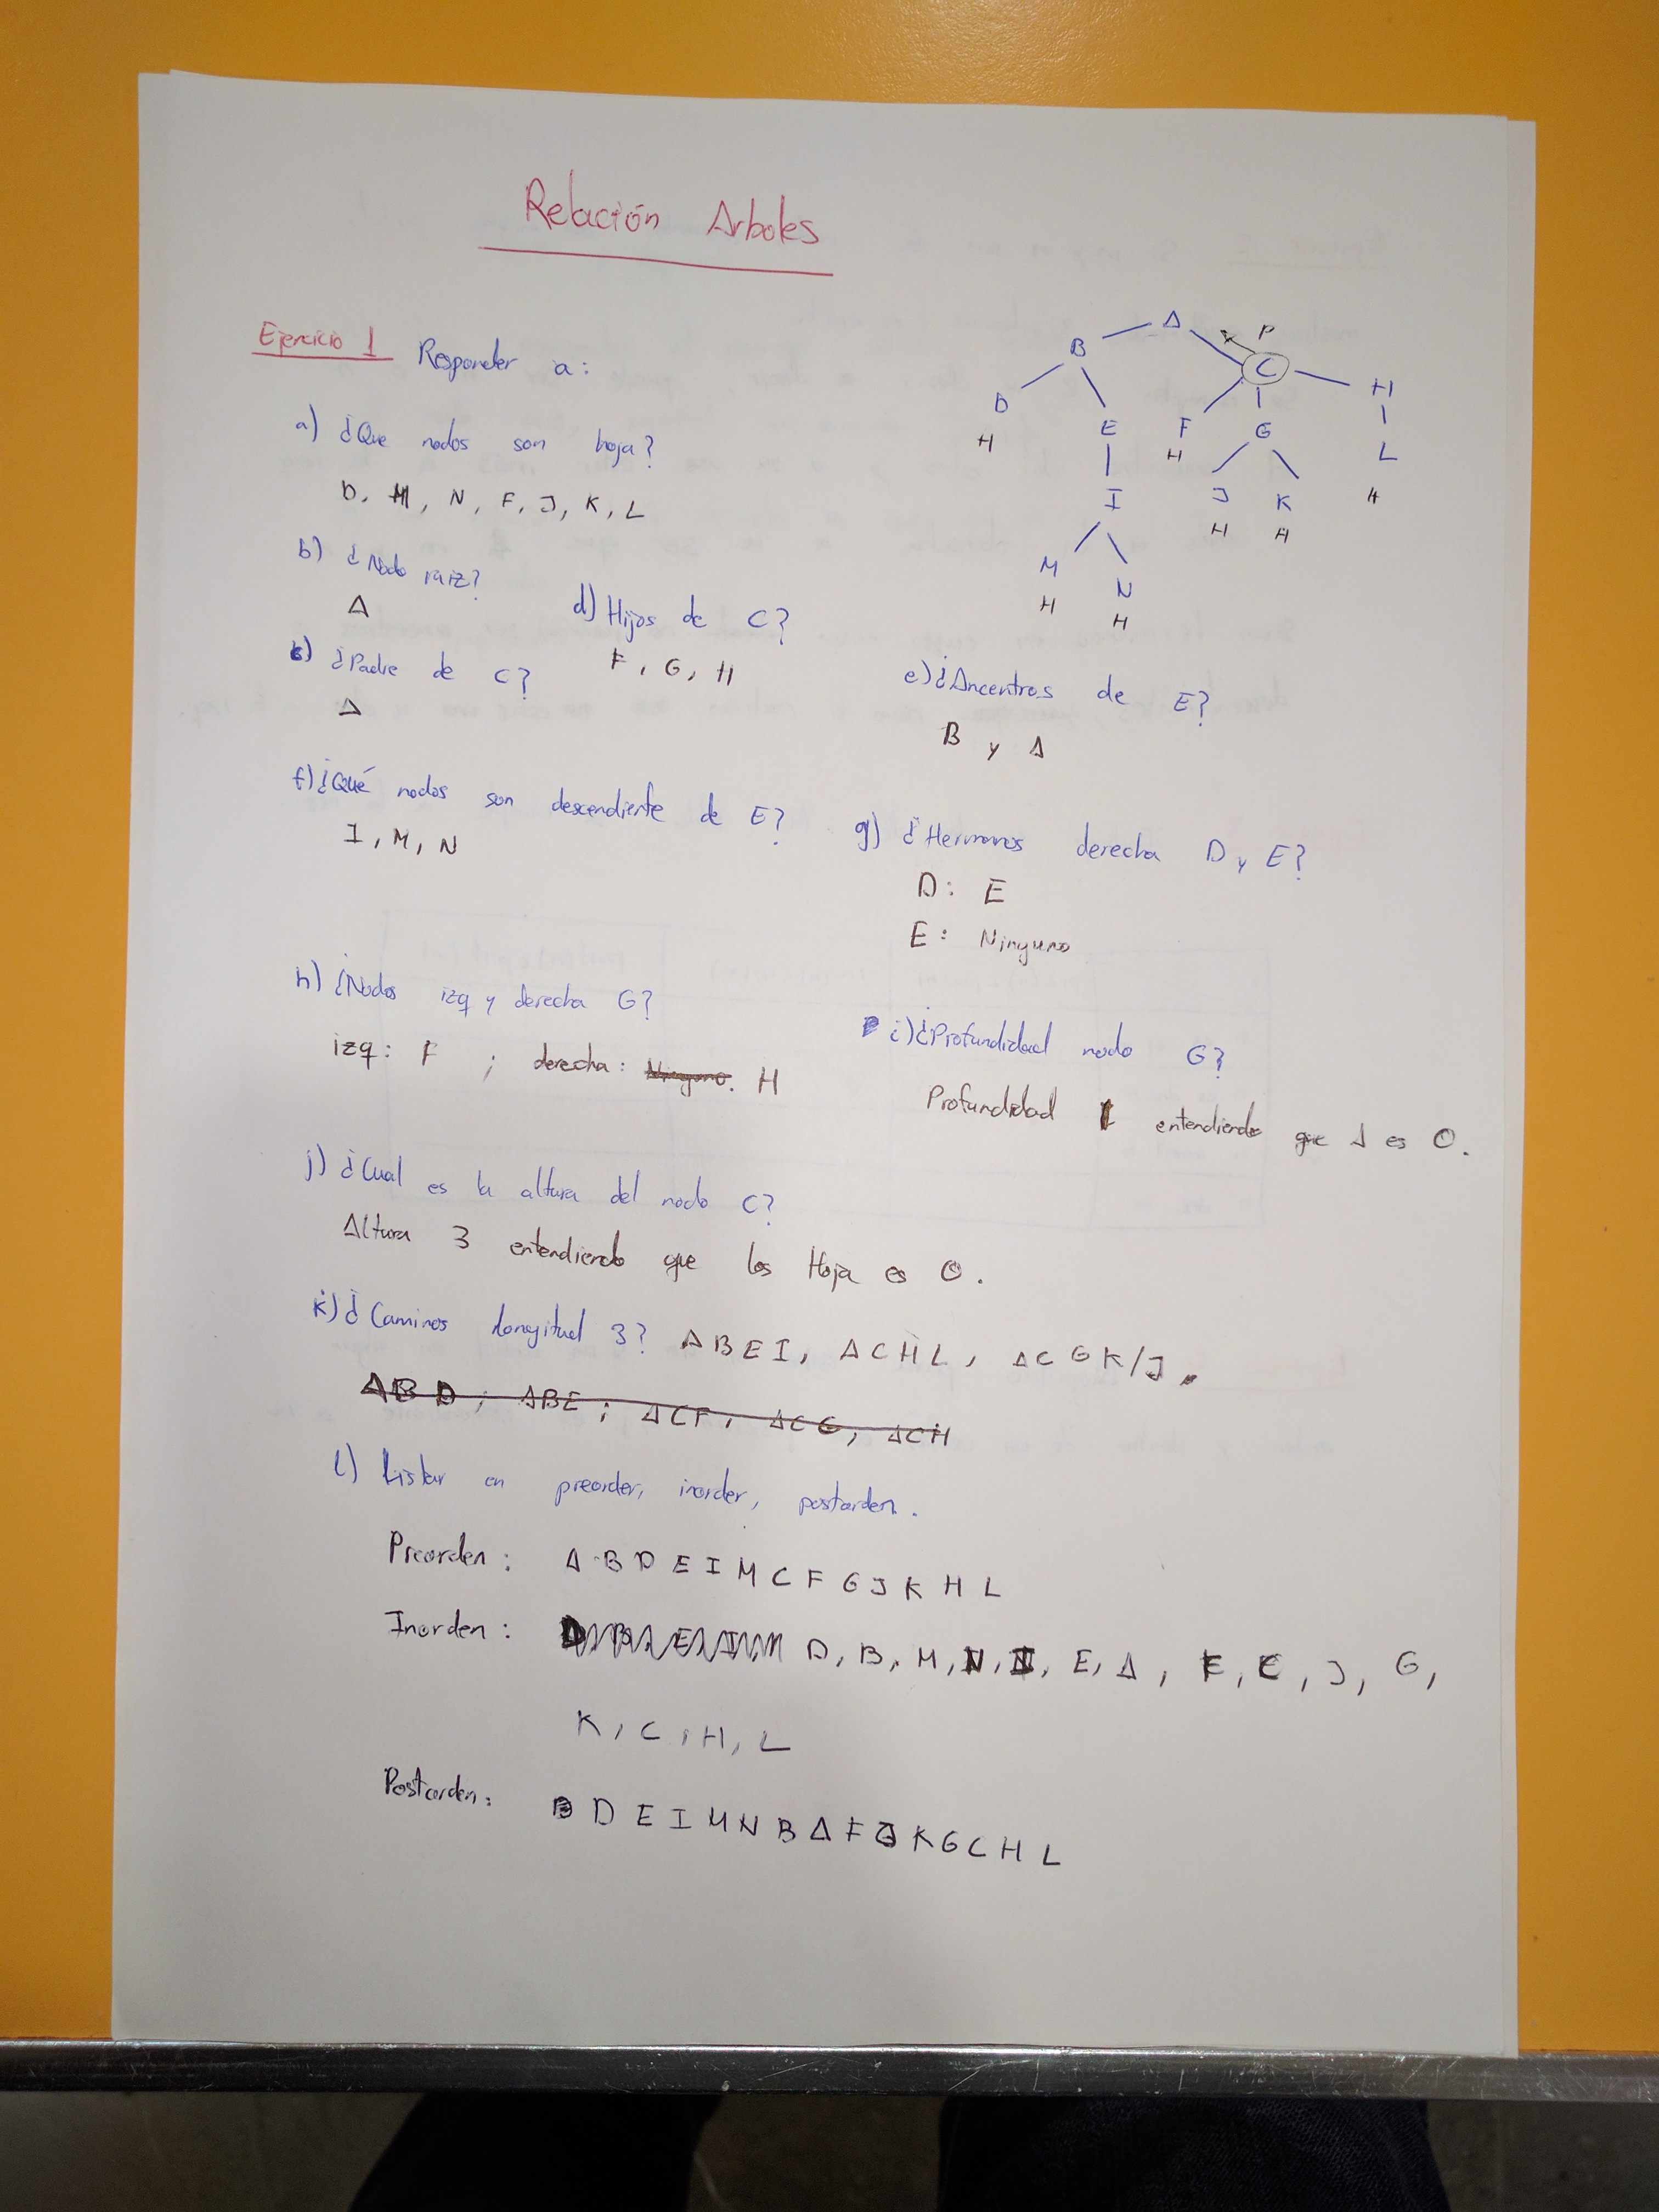 Relación Arboles
Ejercicio 1 Responder a:
A P
B C H
D E F G L
H H H
I J K
H H
M N
H H
a) ¿Que nodos son hoja?
D, M, N, F, J, K, L
b) ¿Nodo raiz?
A
c) ¿Padre de C?
A
d) Hijos de C?
F, G, H
e) ¿Ancentros de E?
B y A
f) ¿Qué nodos son descendiente de E?
I, M, N
g) ¿Hermanos derecha D y E?
D: E
E: Ninguno
h) ¿Nodos izq y derecha G?
izq: F ; derecha: Ninguno. H
i) ¿Profundidad nodo G?
Profundidad entendiendo que A es 0.
j) ¿Cual es la altura del nodo C?
Altura 3 entendiendo que los Hoja es 0.
k) ¿Caminos longitud 3? ABEI, ACHL, ACGK/J.
ABD; ABE; ACF, ACG, ACH
l) Listar en preorder, inorder, postorden.
Preorden: A B D E I M C F G J K H L
Inorden: D, B, M, N, I, E, A, F, C, J, G,
K, C, H, L
Postorden: D E I M N B A F J K G C H L